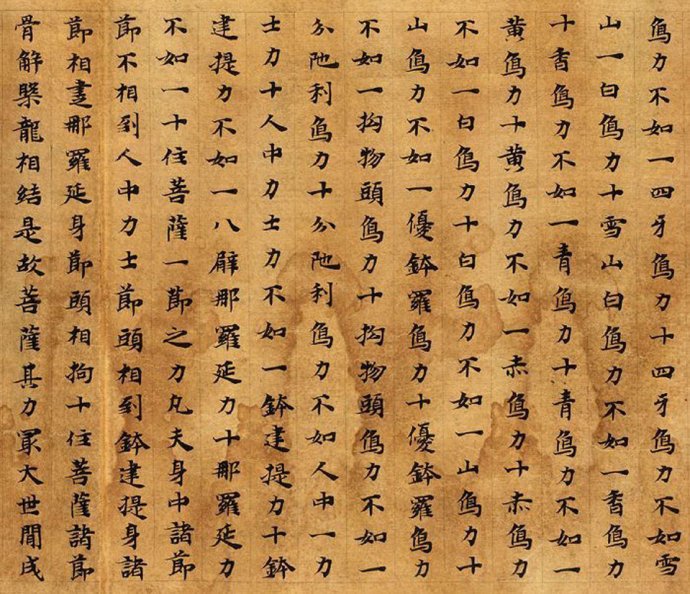 象力不如一四牙象力十四牙象力不如雪
山一白象力十雪山白象力不如一香象力
十香象力不如一青象力十青象力不如一
黄象力十黄象力不如一赤象力十赤象力
不如一白象力十白象力不如一山象力十
山象力不如一優鉢羅象力十優鉢羅象力
不如一拘物頭象力十拘物頭象力不如一
分陁利象力十分陁利象力不如人中一力
士力十人中力士力不如一鉢建提力十鉢
建提力不如一八臂那羅延力十那羅延力
不如一十住菩薩一節之力凡夫身中諸節
節不相到人中力士節頭相到鉢建提身諸
節相那羅延身節頭相拘十住菩薩諸節
骨解槃龍相結是故菩薩其力最大世間成